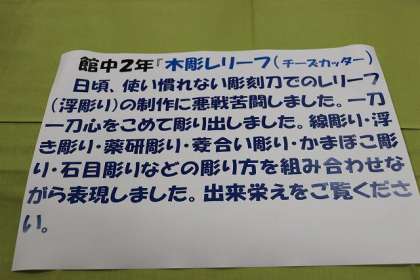 館中2年『木彫レリーフ(チーズカッター)
日頃、使い慣れない彫刻刀でのレリーフ
(浮彫り)の制作に悪戦苦闘しました。一刀
一刀心をこめて彫り出しました。線彫り・浮
き彫り・薬研彫り・菱合い彫り・かまぼこ彫
り・石目彫りなどの彫り方を組み合わせな
がら表現しました。出来栄えをご覧くださ
い。